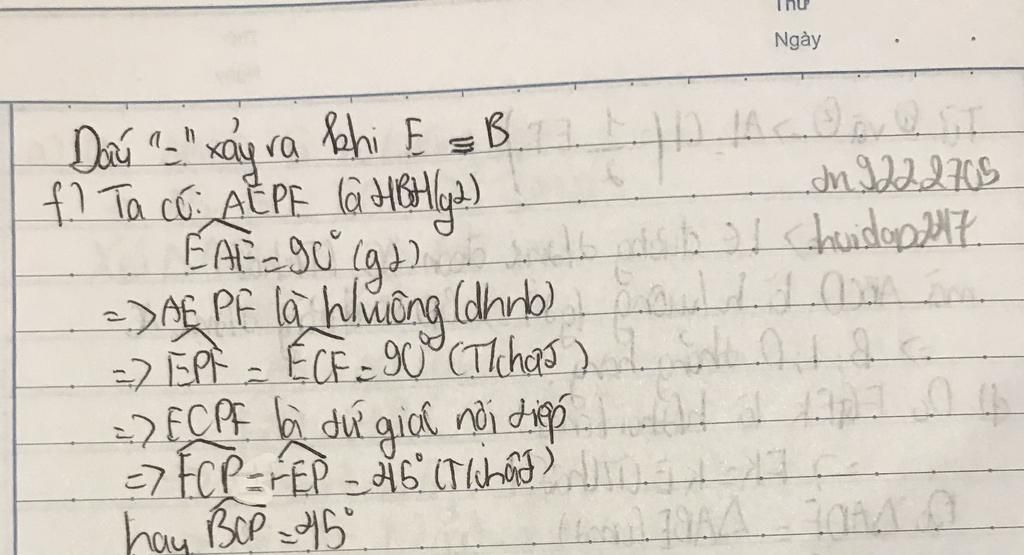 Thứ
Ngày
Dấu "=" xảy ra khi E ≡ B
f) Ta có: AEPF là HBH (gt)
EAF = 90° (gt)
=> AEPF là h/vuông (dhnb)
=> EPF = ECF = 90° (T/chất)
=> ECPF là tứ giác nội tiếp
=> FCP = FEP = 45° (T/chất)
hay BCP = 45°
dn9222705
hoidap247